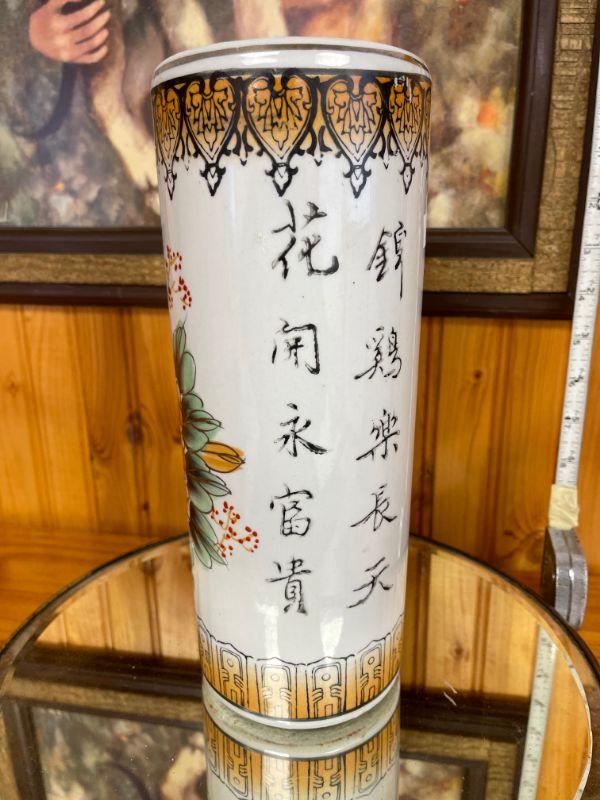 錦鷄樂長天
花開永富貴